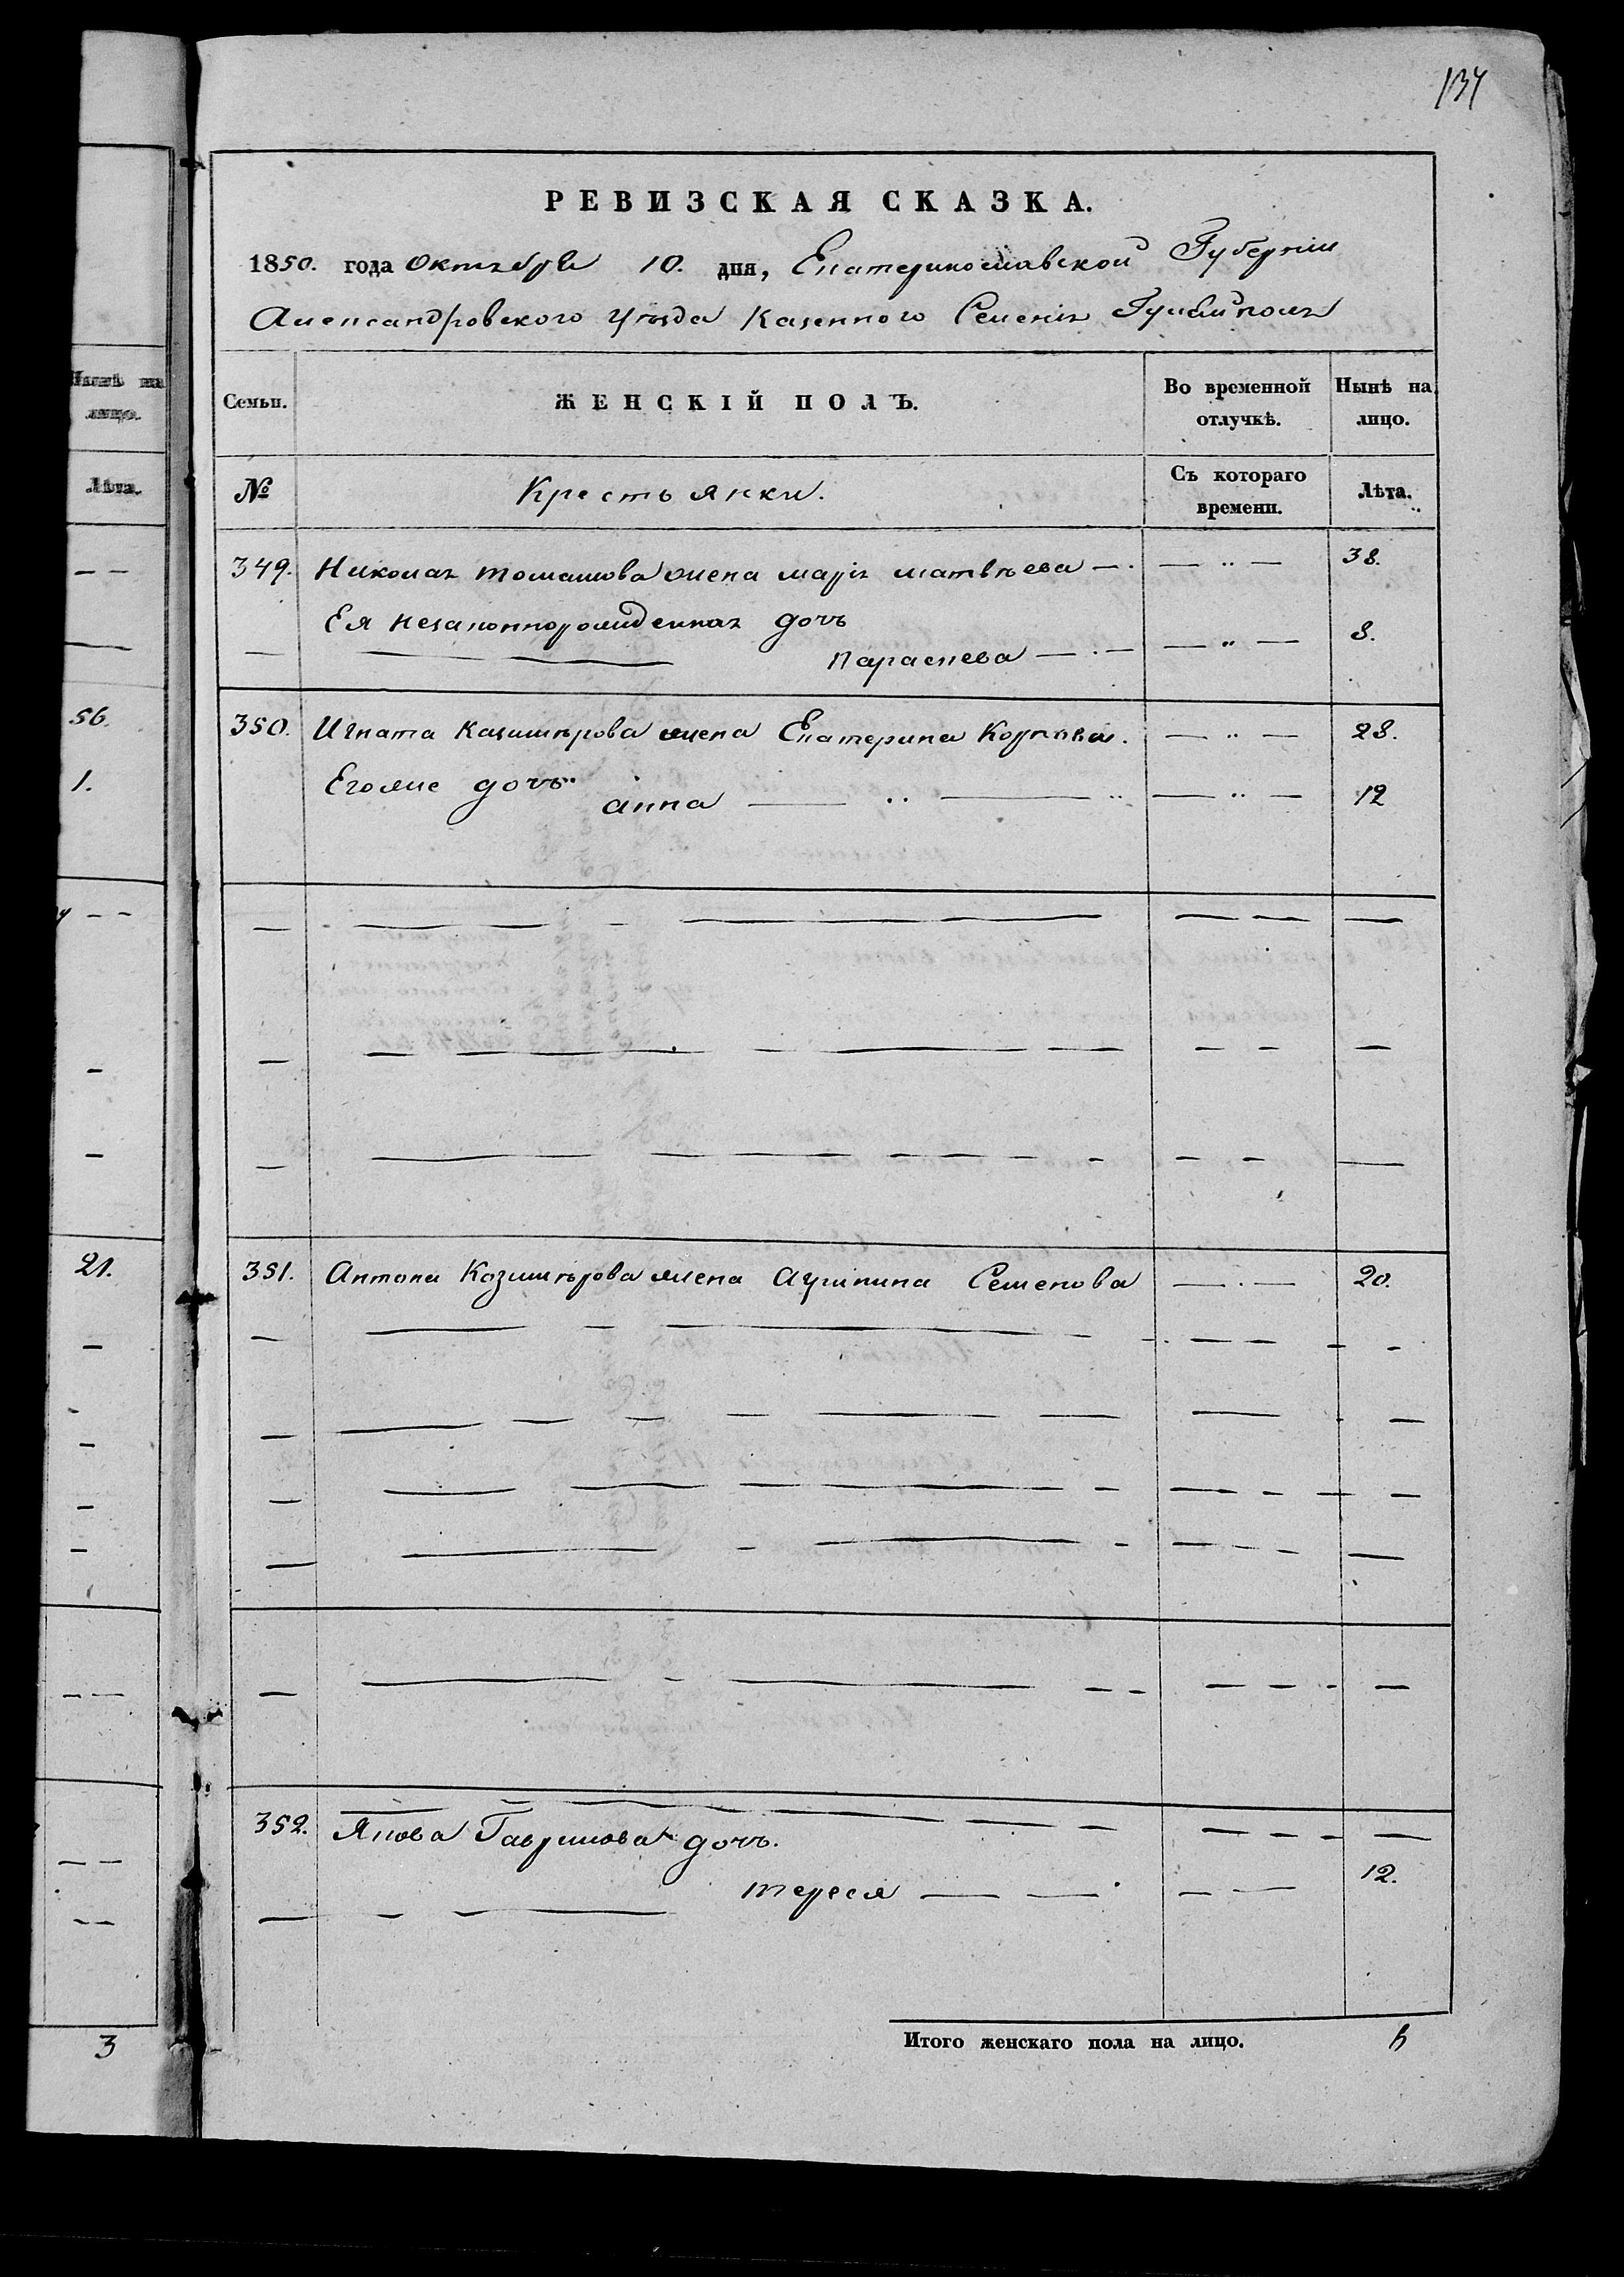 134
РЕВИЗСКАЯ СКАЗКА.
1850. года Октября 10. дня, Екатеринославской Губернии
Александровского уезда Казенного Селения Гуляйполя
Нынѣ на лицо.
Лѣта.
Семьи. ЖЕНСКІЙ ПОЛЪ. Во временной отлучкѣ. Нынѣ на лицо.
№ Крестьянки. Съ котораго времени. Лѣта.
349. Николая Томашова жена Марія Матвѣева 38.
Ея незаконнорожденная дочь
Параскева 8.
56.
350. Игната Казимѣрова жена Екатерина 28.
1.
Егоже дочь Анна 12
21.
351. Антона Козимѣрова жена Агрипина Семенова 20.
352. Янова Гаврилова дочь.
Тереся 12.
3
Итого женскаго пола на лицо.